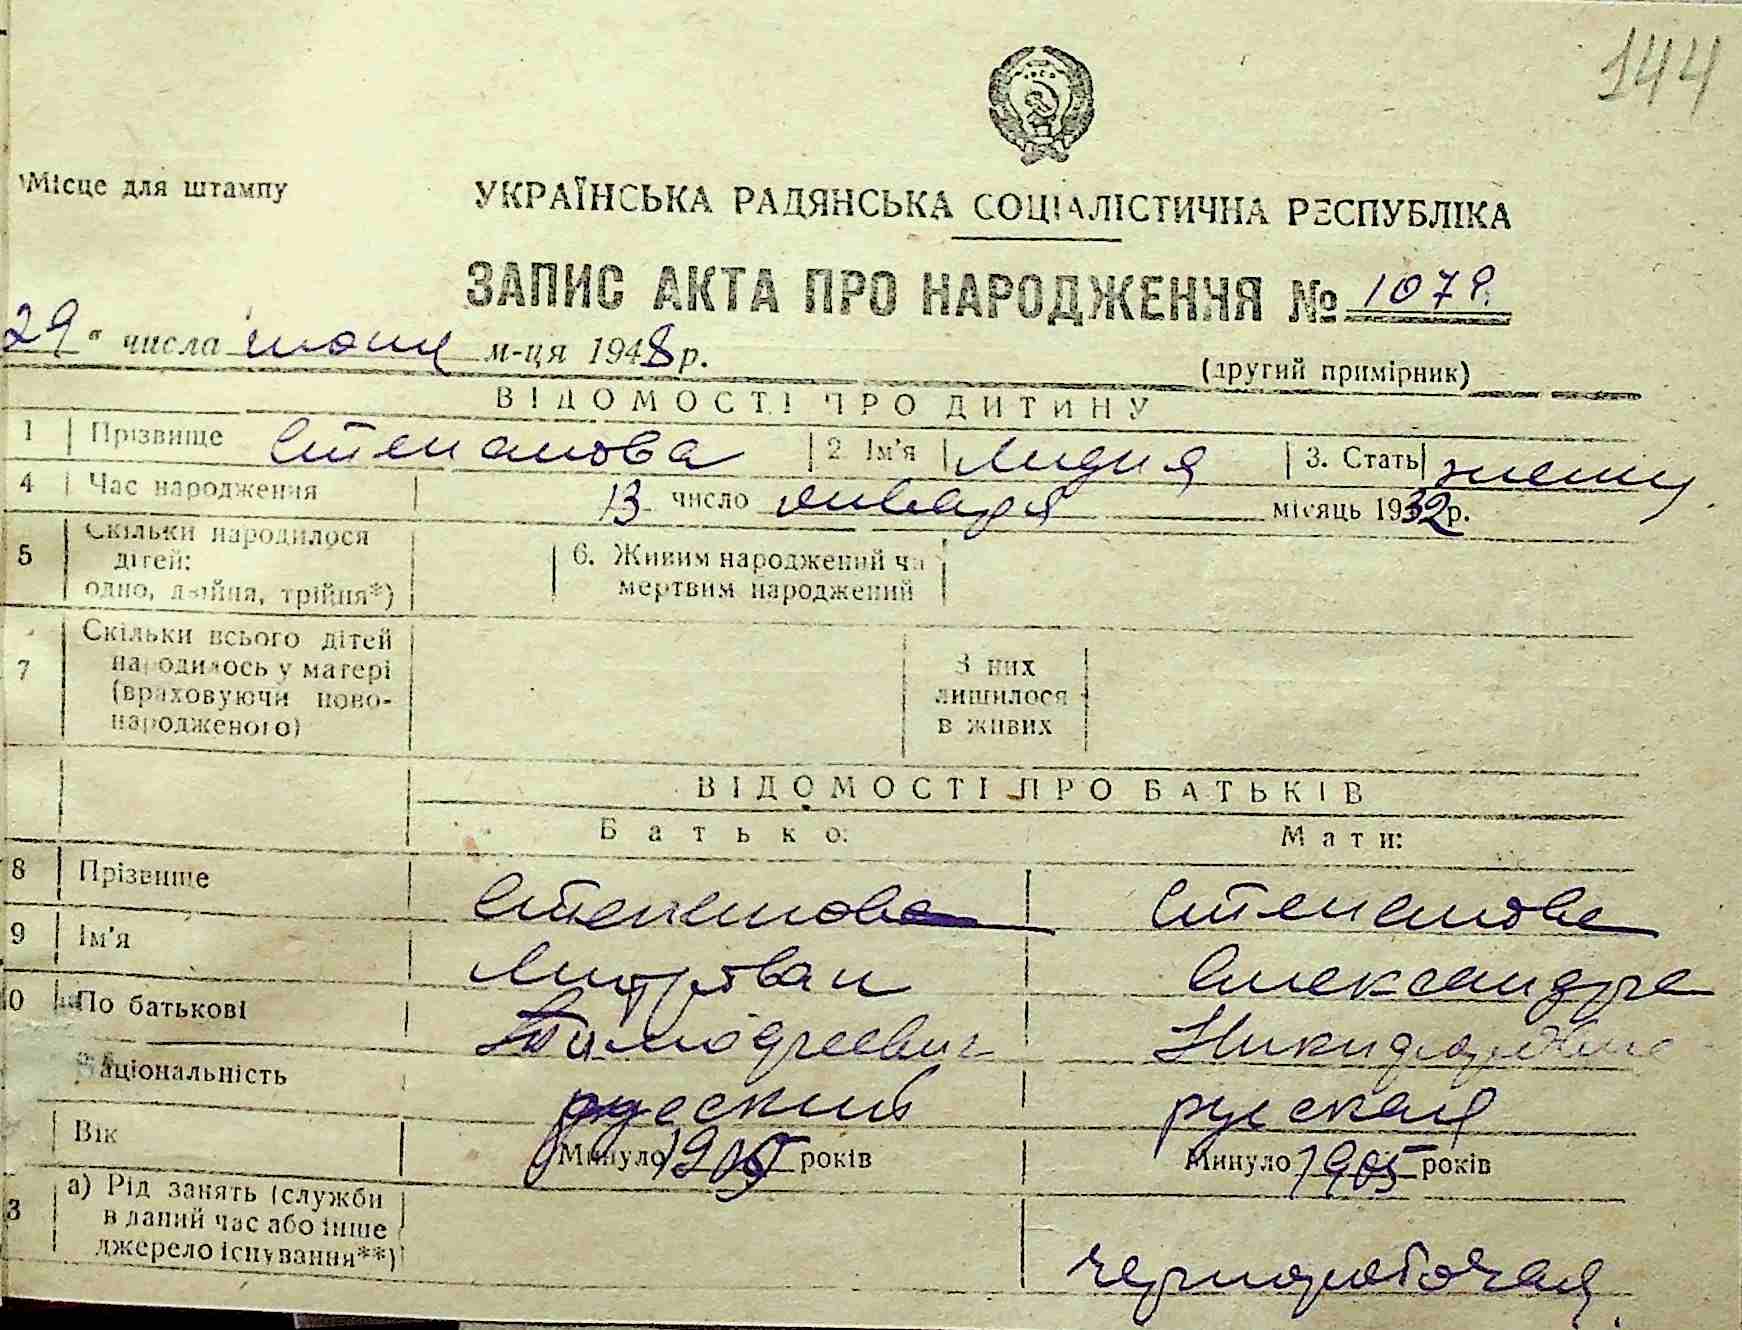 144
Місце для штампу
УКРАЇНСЬКА РАДЯНСЬКА СОЦІАЛІСТИЧНА РЕСПУБЛІКА
ЗАПИС АКТА ПРО НАРОДЖЕННЯ № 1079.
29 " числа июня м-ця 1948 р.
(другий примірник)
ВІДОМОСТІ ПРО ДИТИНУ
1 Прізвище Степанова 2. Ім'я Лидия 3. Стать женск.
4 Час народження 13 число января місяць 1932 р.
5 Скільки народилося
дітей:
одно, двійня, трійня*)
6. Живим народжений чи
мертвим народжений
7 Скільки всього дітей
народилось у матері
(враховуючи ново-
народженого)
З них
лишилося
в живих
ВІДОМОСТІ ПРО БАТЬКІВ
Батько: Мати:
8 Прізвище Степанов Степанова
9 Ім'я Митрофан Александра
0 По батькові Тимофеевич Никифоровна
Національність русский русская
Вік Минуло 1905 років Минуло 1905 років
3 а) Рід занять (служби
в даний час або інше
джерело існування**)
чернорабочая